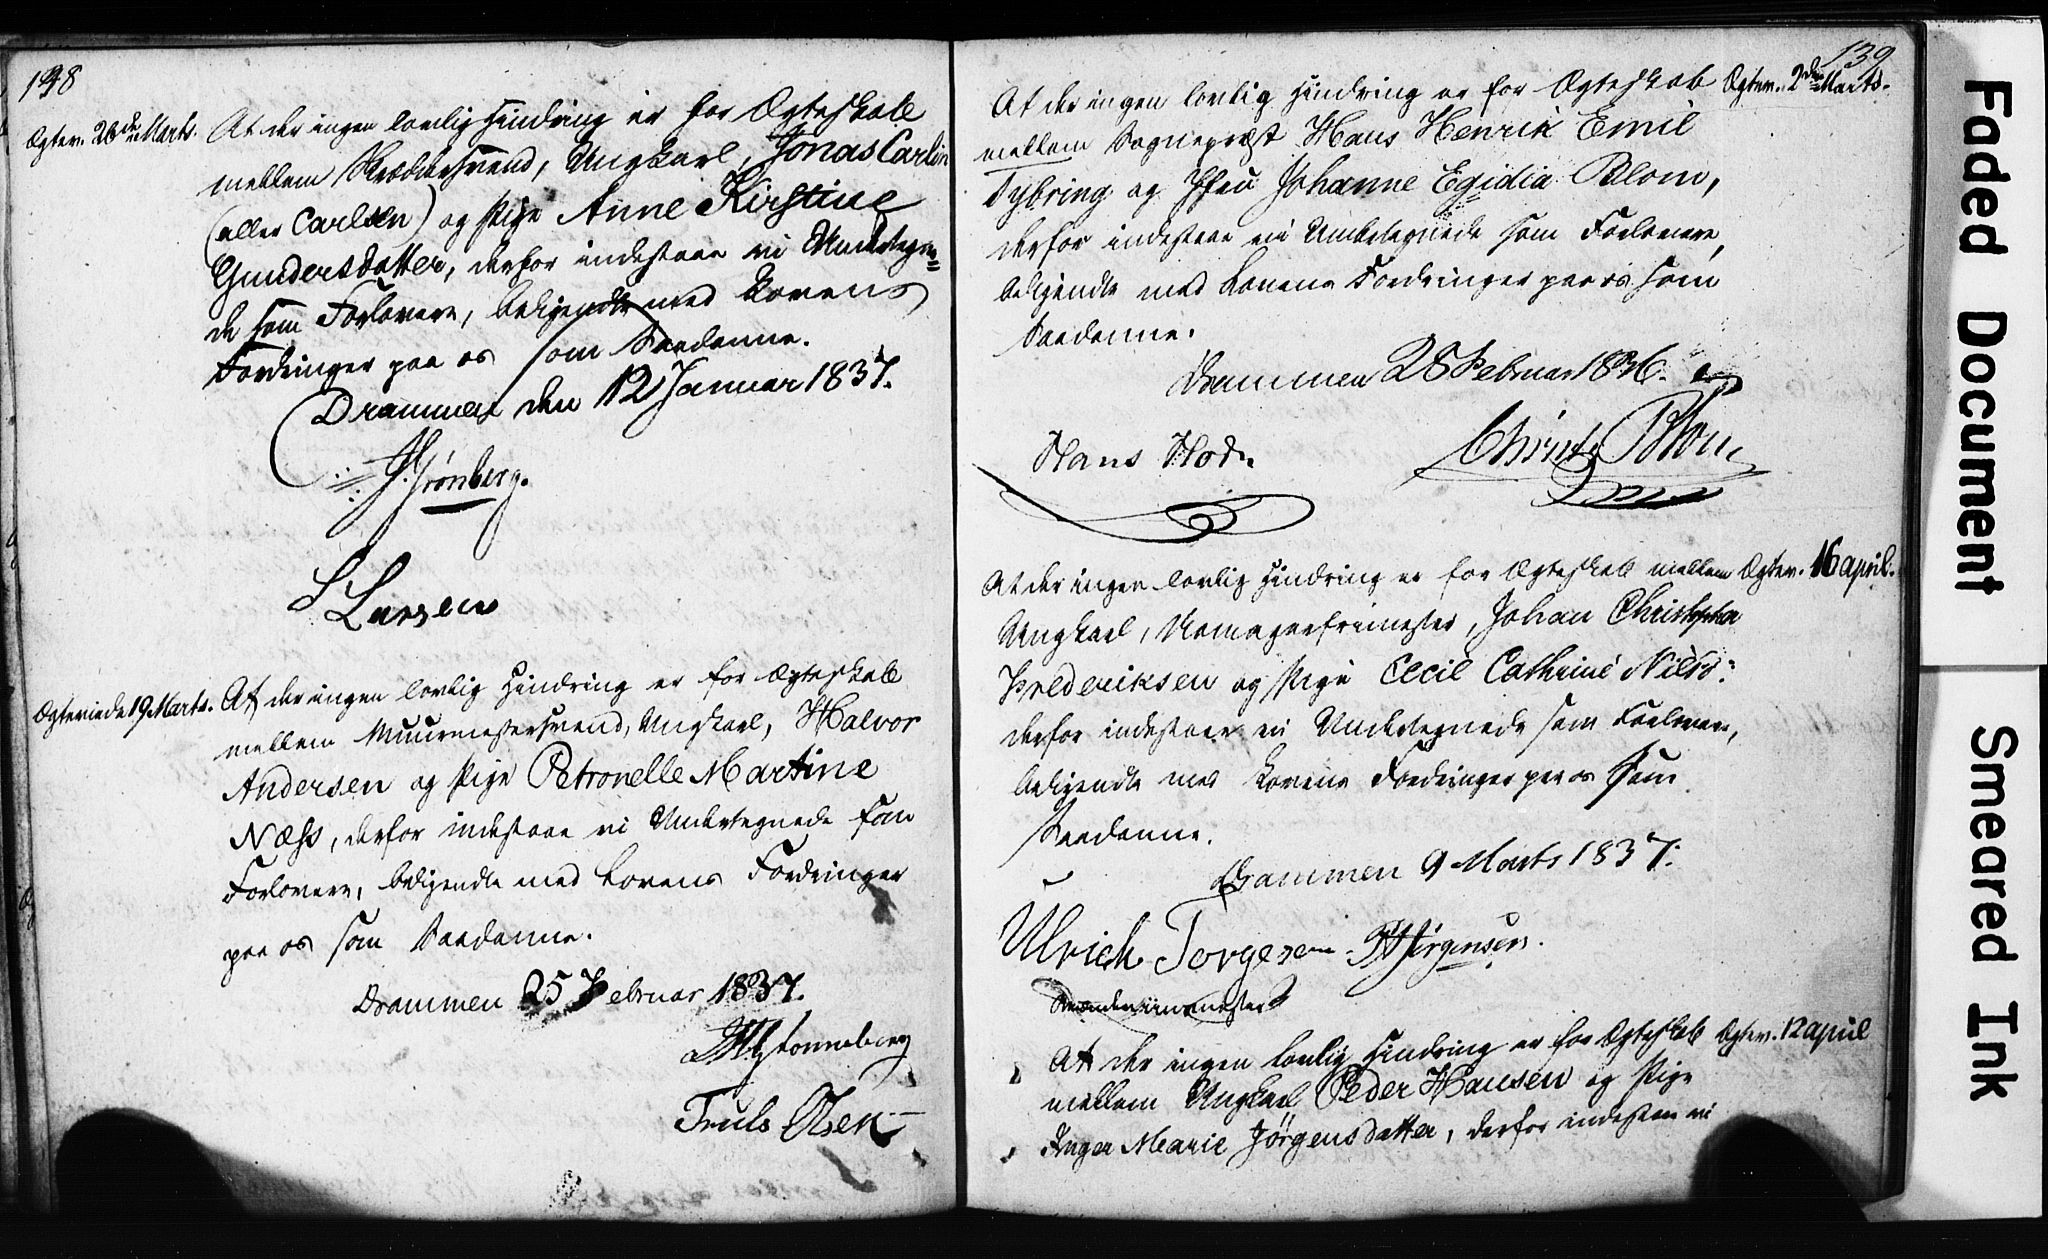 138
Ægtev. 26de Marts.
At der ingen lovlig Hindring er for Ægteskab
mellem Skrædersvend, Ungkarl, Jonas Carlin
(eller Carlsen) og Pige Anne Kirstine
Gundersdatter, derfor indestaae vi Undertegne=
de som Forlovere, bekjendte med Lovens
Fordringer paa os som Saadanne.
Drammen den 12 Januar 1837.
Grønberg.
S Larsen
Ægteviede 19 Marts.
At der ingen lovlig Hindring er for Ægteskab
mellem Muurmestersvend, Ungkarl, Halvor
Andersen og Pige Petronelle Martine
Næss, derfor indestaae vi Undertegnede som
Forlovere, bekjendte med Lovens Fordringer
paa os som Saadanne.
Drammen 25 Februar 1837.
Truls Olsen
139
Ægtev. 2den Marts.
At der ingen lovlig Hindring er for Ægteskab
mellem Sognepræst Hans Henrik Emil
Tybring og Jfru Johanne Egidia Blom,
derfor indestaae vi Undertegnede som Forlovere,
bekjendte med Lovens Fordringer paa os som
Saadanne.
Drammen 28 Februar 1836.
Hans Christ Blom
Ægtev. 16 april.
At der ingen lovlig Hindring er for Ægteskab mellem
Ungkarl, Johan Christopher
Frederiksen og Pige Cecil Cathrine Nilsd:
derfor indestaae vi Undertegnede som Forlovere,
bekjendte med Lovens Fordringer paa os som
Saadanne.
Drammen 9 Marts 1837.
Ulrich Torgesen Jørgensen.
Ægtev. 12 april
At der ingen lovlig Hindring er for Ægteskab
mellem Ungkarl Peder Hansen og Pige
Inger Marie Jørgensdatter, derfor indestaae vi
Faded Document
Smeared Ink